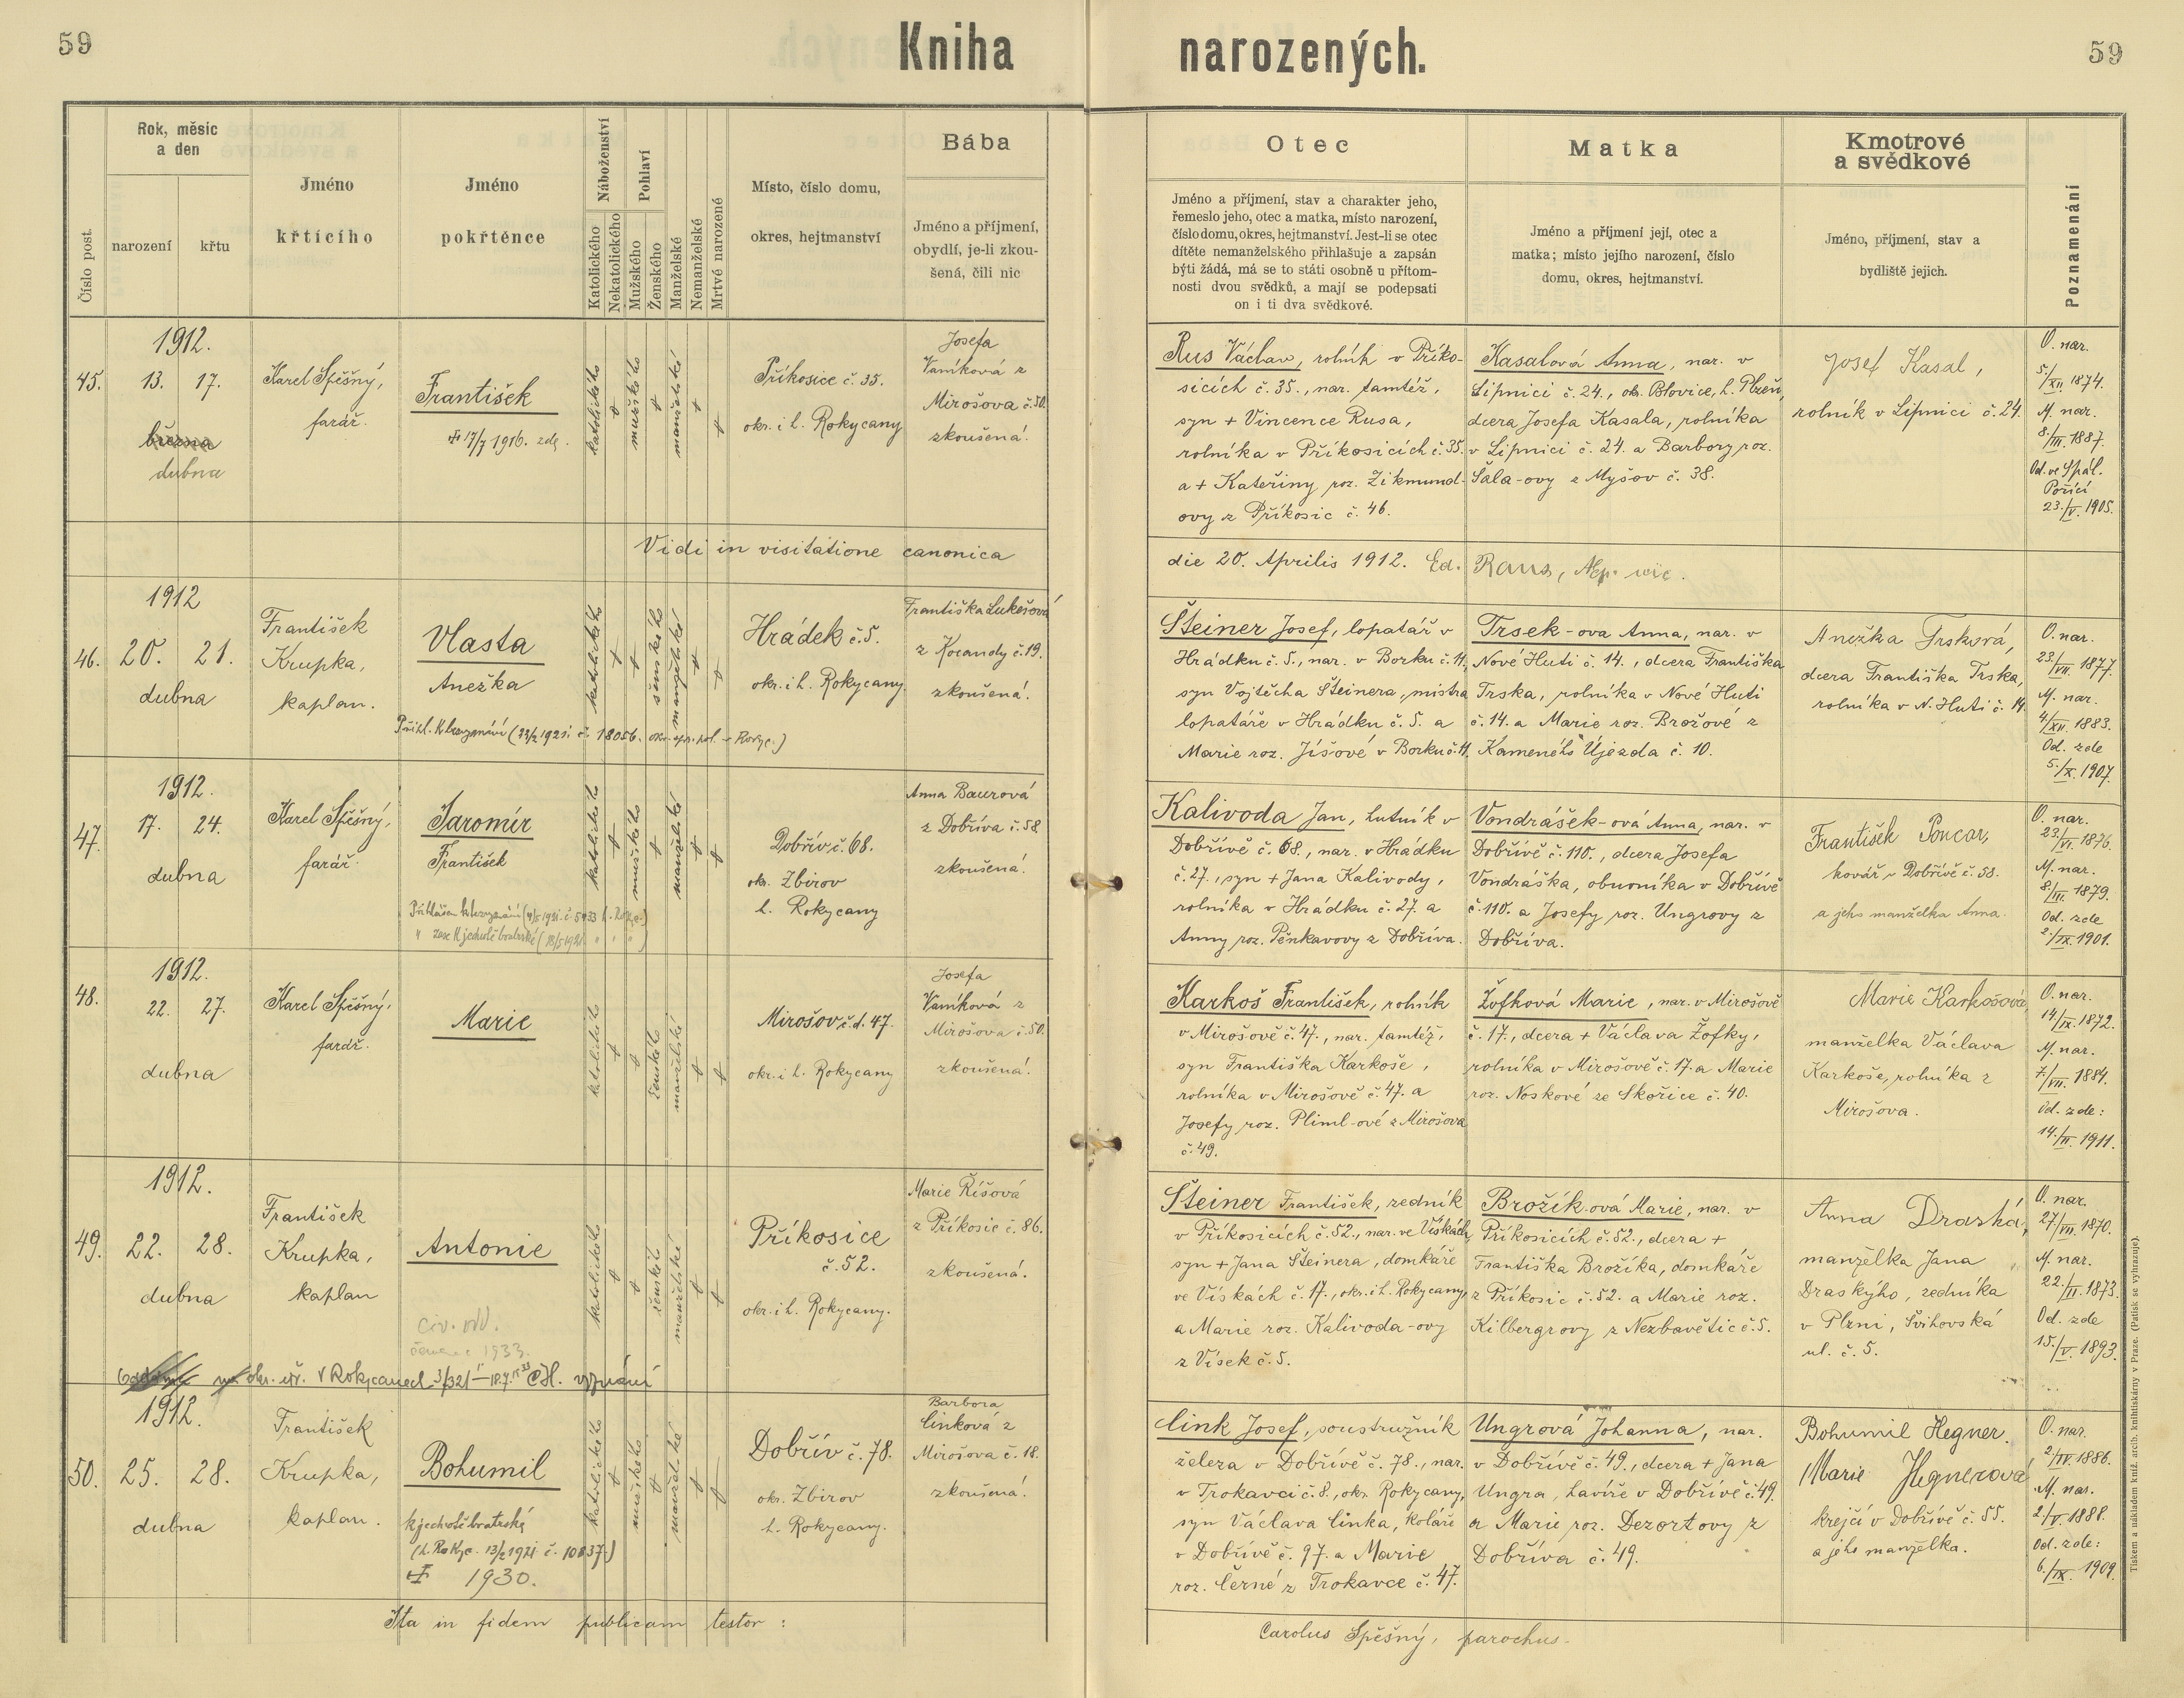 59
Kniha narozených.
59
Číslo post.
Rok, měsíc
a den
narození
křtu
Jméno
křtícího
Jméno
pokřtěnce
Náboženství
Katolického
Nekatolického
Pohlaví
Mužského
Ženského
Manželské
Nemanželské
Mrtvě narozené
Místo, číslo domu,
okres, hejtmanství
Bába
Jméno a příjmení,
obydlí, je-li zkou-
šená, čili nic
Otec
Jméno a příjmení, stav a charakter jeho,
řemeslo jeho, otec a matka, místo narození,
číslo domu, okres, hejtmanství. Jest-li se otec
dítěte nemanželského přihlašuje a zapsán
býti žádá, má se to státi osobně u přítom-
nosti dvou svědků, a mají se podepsati
on i ti dva svědkové.
Matka
Jméno a příjmení její, otec a
matka; místo jejího narození, číslo
domu, okres, hejtmanství.
Kmotrové
a svědkové
Jméno, příjmení, stav a
bydliště jejich.
Poznamenání
45.
1912.
13. 17.
března
dubna
Karel Spěšný,
farář.
František
17/7 1916. zde.
katolického
mužského
manželské
Příkosice č. 35.
okr. i h. Rokycany
Josefa
Vaníková z
Mirošova č. 50.
zkoušená.
Rus Václav, rolník v Příko-
sicích č. 35., nar. tamtéž,
syn + Vincence Rusa,
rolníka v Příkosicích č. 35.
a + Kateřiny roz. Zikmund-
ovy z Příkosic č. 46.
Kasalová Anna, nar. v
Lipnici č. 24., ok. Blovice, h. Plzeň,
dcera Josefa Kasala, rolníka
v Lipnici č. 24. a Barbory roz.
Šala-ovy z Myšov č. 38.
Josef Kasal,
rolník v Lipnici č. 24.
O. nar.
5./XII. 1874.
M. nar.
8./III. 1887.
Od. ve Spál.
Poříčí
23./V. 1905.
Vidi in visitatione canonica die 20. Aprilis 1912. Ed. Raus,
46.
1912
20. 21.
dubna
František
Krupka,
kaplan.
Vlasta
Anežka
katolického
ženského
manželské
Hrádek č. 5.
okr. i h. Rokycany.
Františka Lukešová
z Kocandy č. 19.
zkoušená.
Šteiner Josef, lopatář v
Hrádku č. 5., nar. v Borku č. 11,
syn Vojtěcha Šteinera, mistra
lopatáře v Hrádku č. 5. a
Marie roz. Jíšové v Borku č. 11.
Trsek-ova Anna, nar. v
Nové Huti č. 14., dcera Františka
Trska, rolníka v Nové Huti
č. 14. a Marie roz. Brožové z
Kameného Újezda č. 10.
Anežka Trsková,
dcera Františka Trska,
rolníka v N. Huti č. 14.
O. nar.
23./VII. 1877.
M. nar.
4/XII. 1883.
Od. zde
5./X. 1907.
47.
1912.
17. 24.
dubna
Karel Spěšný,
farář.
Jaromír
František
katolického
mužského
manželské
Dobřív č. 68.
okr. Zbirov
h. Rokycany
Anna Baurová
z Dobříva č. 58
zkoušená.
Kalivoda Jan, hutník v
Dobřívě č. 68., nar. v Hrádku
č. 27., syn + Jana Kalivody,
rolníka v Hrádku č. 27. a
Anny roz. Pěnkavovy z Dobříva.
Vondrášek-ová Anna, nar. v
Dobřívě č. 110., dcera Josefa
Vondráška, obuvníka v Dobřívě
č. 110. a Josefy roz. Ungrovy z
Dobříva.
František Poncar,
kovář v Dobřívě č. 58.
a jeho manželka Anna.
O. nar.
23./VI. 1876.
M. nar.
8/III. 1879.
Od. zde
2./IX. 1901.
48.
1912.
22. 27.
dubna
Karel Spěšný,
farář.
Marie
katolického
ženského
manželské
Mirošov, č. d. 47.
okr. i h. Rokycany
Josefa
Vaníková z
Mirošova č. 50.
zkoušená.
Karkoš František, rolník
v Mirošově č. 47., nar. tamtéž,
syn Františka Karkoše,
rolníka v Mirošově č. 47. a
Josefy roz. Pliml-ové z Mirošova
č. 49.
Žofková Marie, nar. v Mirošově
č. 17., dcera + Václava Žofky,
rolníka v Mirošově č. 17. a Marie
roz. Noskové ze Skořice č. 40.
Marie Karkošová,
manželka Václava
Karkoše, rolníka z
Mirošova.
O. nar.
14./IX. 1872.
M. nar.
7./VII. 1884.
Od. zde:
14./II. 1911.
49.
1912.
22. 28.
dubna
František
Krupka,
kaplan
Antonie
1933.
katolického
ženského
manželské
Příkosice
č. 52.
okr. i h. Rokycany.
Marie Říšová
z Příkosic č. 86.
zkoušená.
Šteiner František, zedník
v Příkosicích č. 52., nar. ve Vískách,
syn + Jana Šteinera, domkáře
ve Vískách č. 17., okr. i h. Rokycany,
a Marie roz. Kalivoda-ovy
z Vísek č. 5.
Brožík-ová Marie, nar. v
Příkosicích č. 52., dcera +
Františka Brožíka, domkáře
z Příkosic č. 52. a Marie roz.
Kilbergrovy z Nezbavětic č. 5.
Anna Draská,
manželka Jana
Draskýho, zedníka
v Plzni, Švihovská
ul. č. 5.
O. nar.
27/VII. 1870.
M. nar.
22./II. 1873.
Od. zde
15./V. 1893.
okr. úř. v Rokycanech
50.
1912.
25. 28.
dubna
František
Krupka,
kaplan.
Bohumil
k jednotě bratrské
(h. Rokyc. 13/2 1921 č. 10837.)
1930.
katolického
mužského
manželské
Dobřív č. 78.
okr. Zbirov
h. Rokycany.
Barbora
Cinková z
Mirošova č. 18.
zkoušená.
Cink Josef, soustružník
železa v Dobřívě č. 78., nar.
v Trokavci č. 8., okr. Rokycany,
syn Václava Cinka, koláře
v Dobřívě č. 97. a Marie
roz. Černé z Trokavce č. 47.
Ungrová Johanna, nar.
v Dobřívě č. 49., dcera + Jana
Ungra, havíře v Dobřívě č. 49.
a Marie roz. Dezortovy z
Dobříva č. 49.
Bohumil Hegner.
Marie Hegnerová
krejčí v Dobřívě č. 55.
a jeho manželka.
O. nar.
2./IV. 1886.
M. nar.
2/V. 1888.
Od. zde:
6./IX. 1909.
Ita in fidem publicam testor:
Carolus Spěšný, parochus.
Tiskem a nákladem kníž. arcib. knihtiskárny v Praze. (Patisk se vyhrazuje).